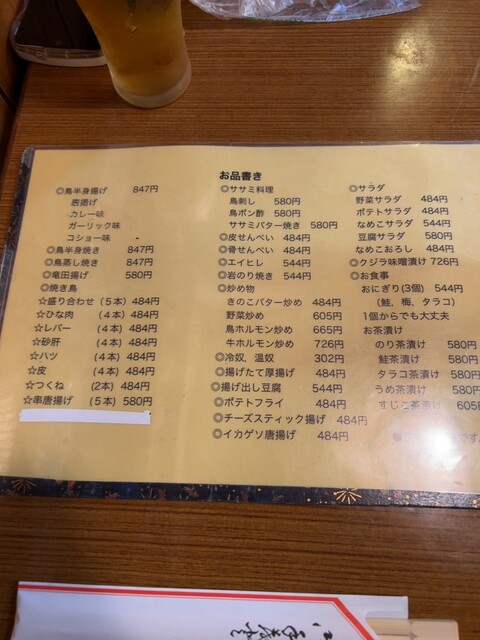 お品書き
◎鳥半身揚げ 847円
唐揚げ
カレー味
ガーリック味
コショー味
◎鳥半身焼き 847円
◎鳥蒸し焼き 847円
◎竜田揚げ 580円
◎焼き鳥
☆盛り合わせ(5本) 484円
☆ひな肉 (4本) 484円
☆レバー (4本) 484円
☆砂肝 (4本) 484円
☆ハツ (4本) 484円
☆皮 (4本) 484円
☆つくね (2本) 484円
☆串唐揚げ (5本) 580円
◎ササミ料理
鳥刺し 580円
鳥ポン酢 580円
ササミバター焼き 580円
◎皮せんべい 484円
◎骨せんべい 484円
◎エイヒレ 544円
◎岩のり焼き 544円
◎炒め物
きのこバター炒め 484円
野菜炒め 605円
鳥ホルモン炒め 665円
牛ホルモン炒め 726円
◎冷奴、温奴 302円
◎揚げたて厚揚げ 484円
◎揚げ出し豆腐 544円
◎ポテトフライ 484円
◎チーズスティック揚げ 484円
◎イカゲソ唐揚げ 484円
◎サラダ
野菜サラダ 484円
ポテトサラダ 484円
なめこサラダ 544円
豆腐サラダ 580円
なめこおろし 484円
◎クジラ味噌漬け 726円
◎お食事
おにぎり(3個) 544円
(鮭、梅、タラコ)
1個からでも大丈夫
お茶漬け
のり茶漬け 580円
鮭茶漬け 580円
タラコ茶漬け 580円
うめ茶漬け 580円
すじこ茶漬け 605円